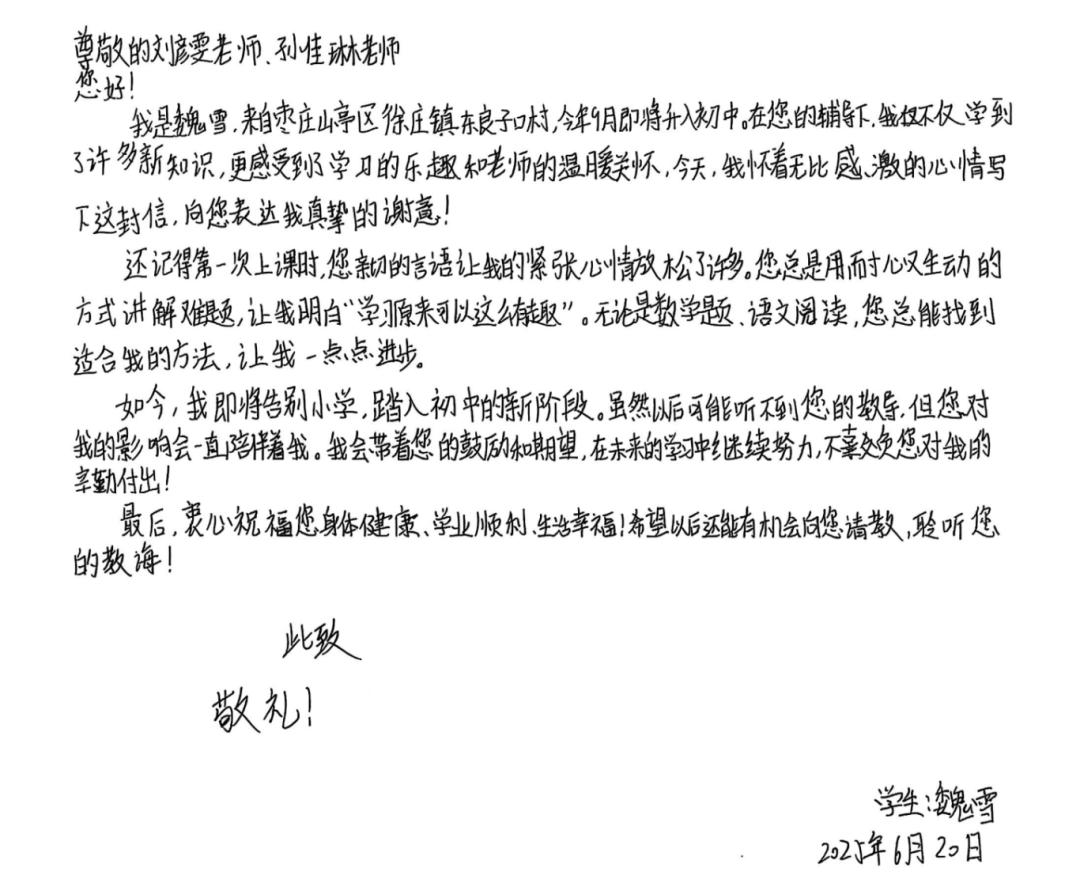 尊敬的刘彦雯老师、孙佳琳老师
您好!
我是魏雪,来自枣庄山亭区徐庄镇东良子口村,今年9月即将升入初中。在您的辅导下,我不仅学到
了许多新知识,更感受到了学习的乐趣和老师的温暖关怀,今天,我怀着无比感激的心情写
下这封信,向您表达我真挚的谢意!
还记得第一次上课时,您亲切的言语让我的紧张心情放松了许多。您总是用耐心又生动的
方式讲解难题,让我明白“学习原来可以这么有趣”。无论是数学题、语文阅读,您总能找到
适合我的方法,让我一点点进步。
如今,我即将告别小学,踏入初中的新阶段。虽然以后可能听不到您的教导,但您对
我的影响会一直陪伴着我。我会带着您的鼓励和期望,在未来的学习中继续努力,不辜负您对我的
辛勤付出!
最后,衷心祝福您身体健康、学业顺利、生活幸福!希望以后还能有机会向您请教,聆听您
的教诲!
此致
敬礼!
学生:魏雪
2025年6月20日